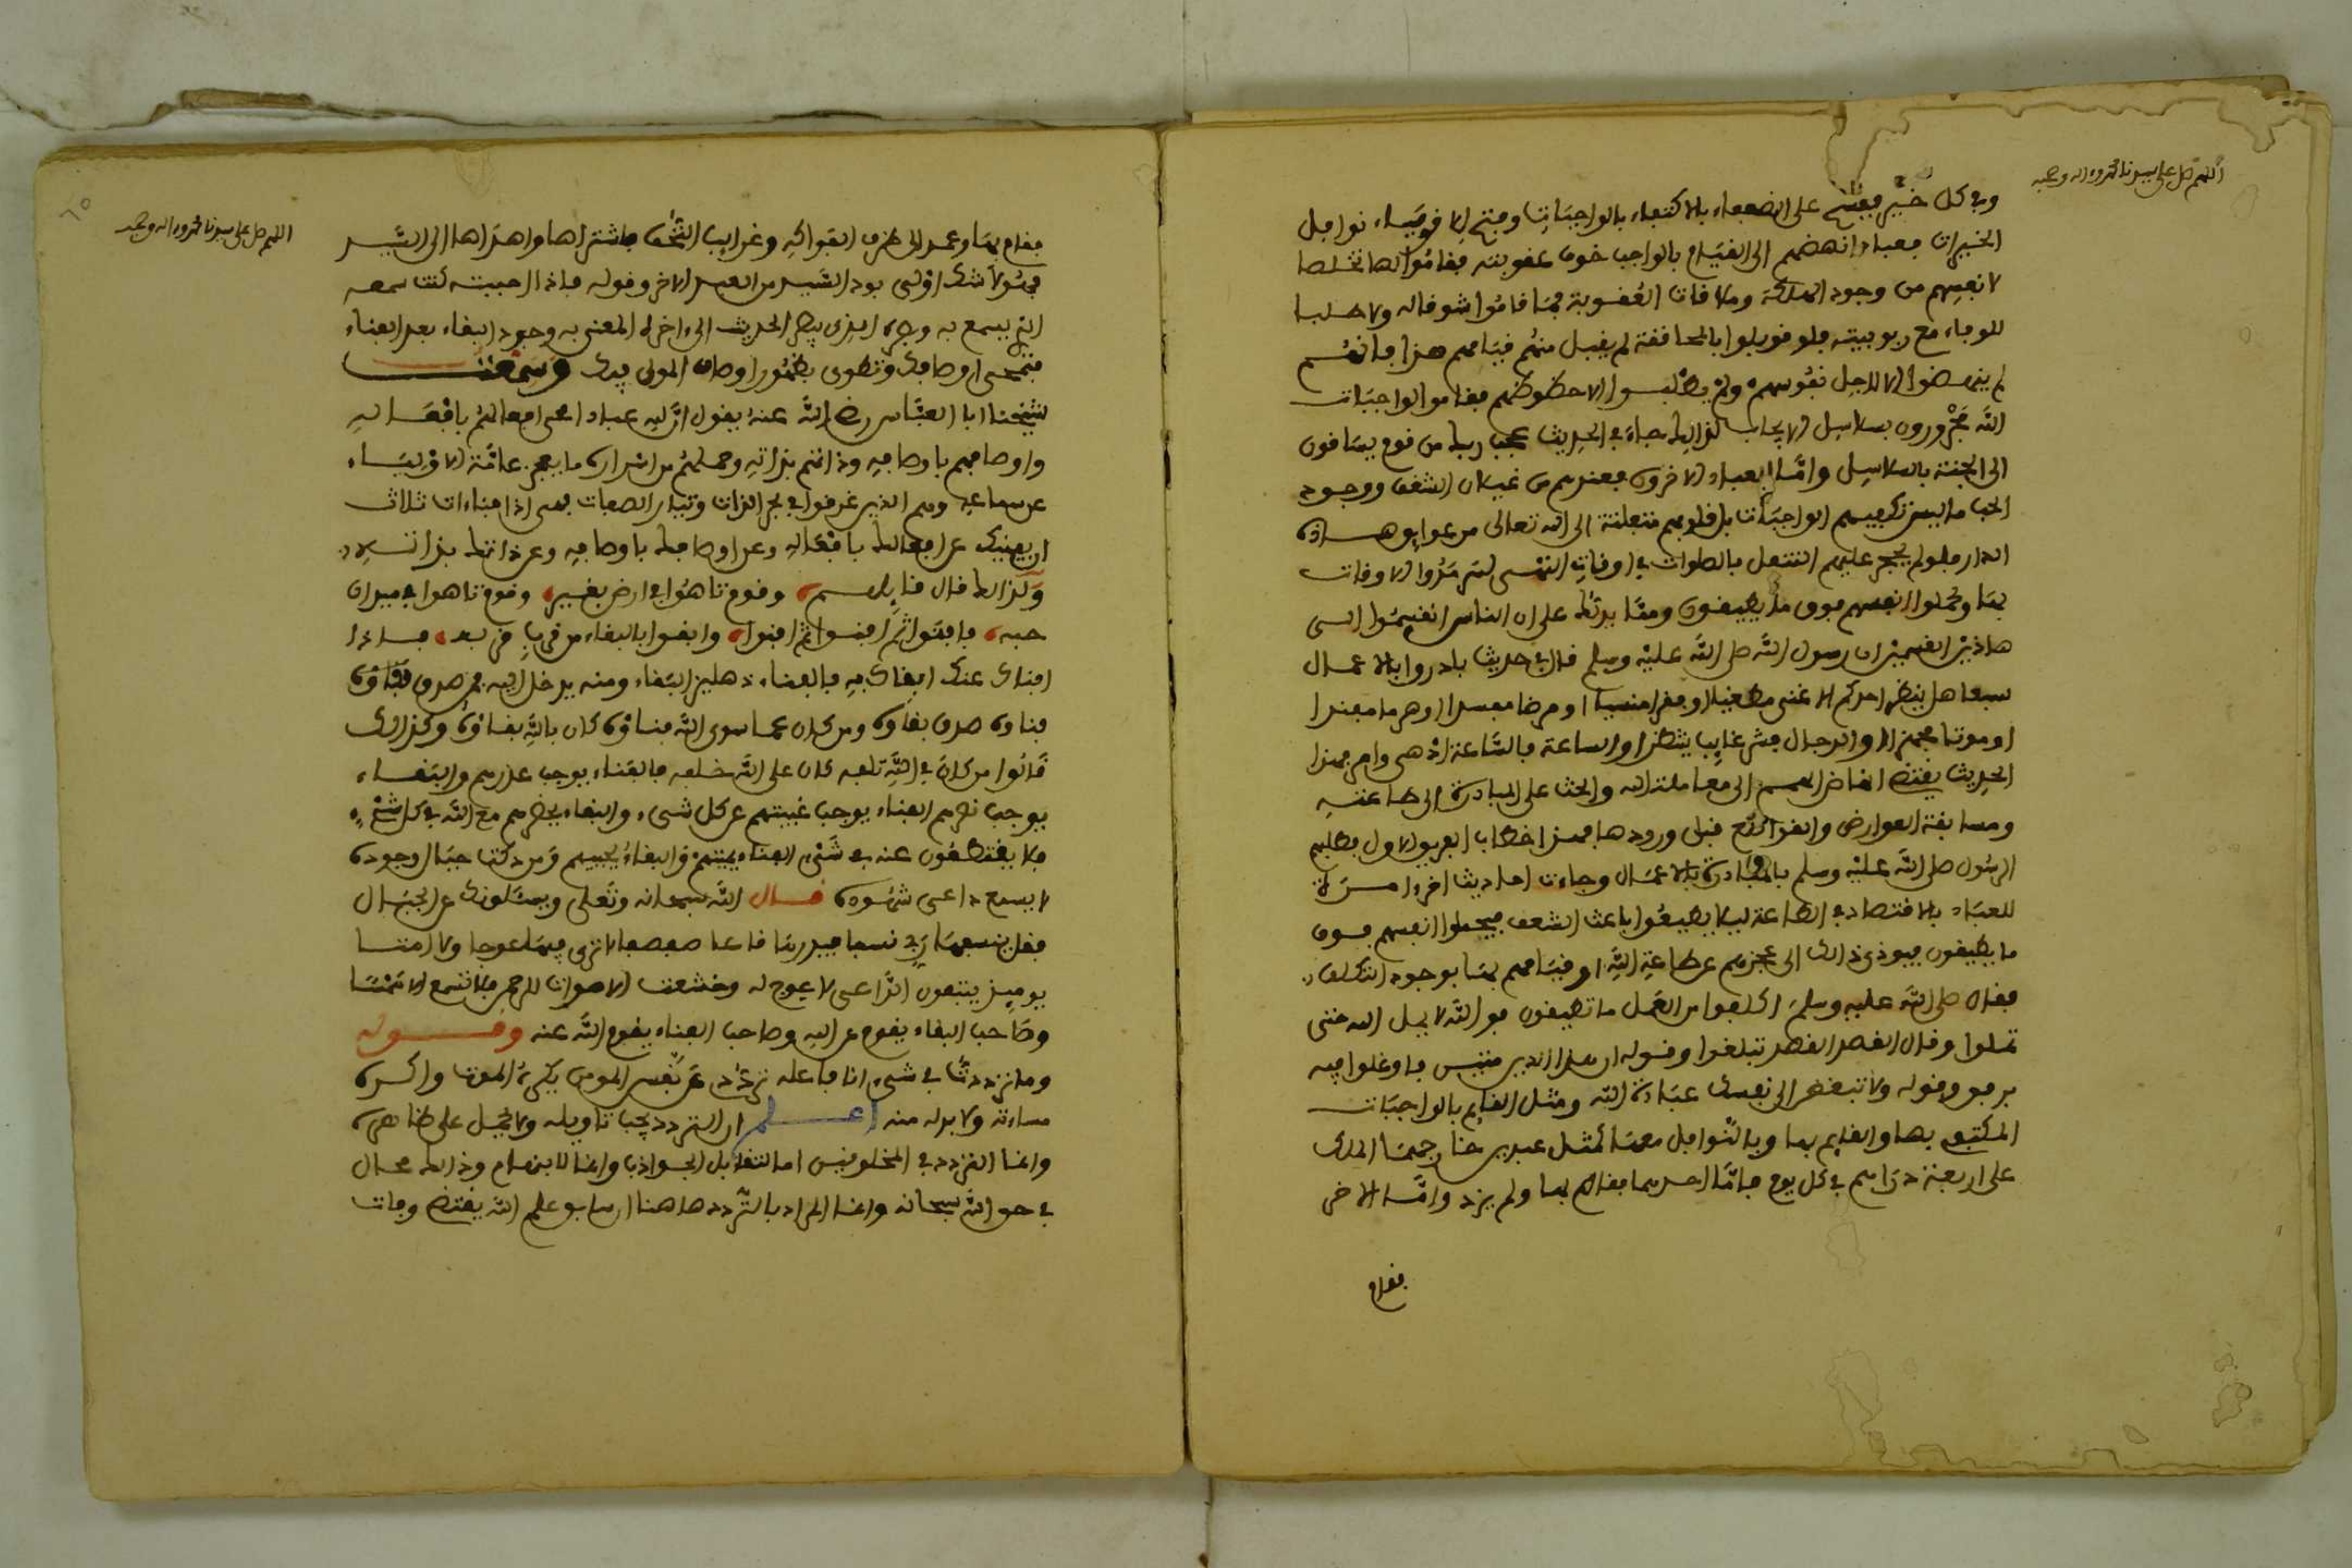 اللهم صل على سيدنا محمد واله وصحبه
وفي كل خير ففسح على الضعفاء بالاكتفاء بالواجبات وفتح للاقوياء نوافل
الخيرات فعباد انهضهم الى القيام بالواجب خوف عقوبته فقاموا لها تخلصا
لانفسهم من وجود الهلكة وملاقات العقوبة فما قاموا شوقا له ولا طلبا
للوفاء مع ربوبيته فلو قوبلوا بالمحاققة لم يقبل منهم قيامهم هذا فانهم
لم ينهضوا الا لاجل نفوسهم ولم يطلبوا الا حظوظهم فقاموا لواجبات
الله مجرورون بسلاسل الايجاب كذالك جاء في الحديث عجب ربك من قوم يساقون
الى الجنة بالسلاسل واما العباد الاخرون فعندهم من غليان الشغف ووجود
الحب ما ليس تكفيهم الواجبات بل قلوبهم متعلقة الى الله تعالى من عوايق هذه
الدار فلو لم يحجر عليهم التنفل بالصلوات في اوقات النهي لسرمدوا الاوقات
بها وحملوا انفسهم فوق ما يطيقون ومما يدلك على ان الناس انقسموا الى
هاذين القسمين ان رسول الله صلى الله عليه وسلم قال في حديث بادروا بالاعمال
سبعا هل ينظر احدكم الا غنى مطغيا او فقرا منسيا او مرضا مفسدا او هرما مفندا
او موتا مجهزا او الدجال فشر غايب ينتظر او الساعة فالساعة ادهى وامر فهذا
الحديث يقتضي انهاض الهمم الى معاملة الله والحث على المبادرة الى طاعته
ومسابقة العوارض والقواطع قبل ورودها فهذا خطاب الفريق الاول يطلبهم
الرسول صلى الله عليه وسلم بالمبادرة بالاعمال وجاءت احاديث اخر امرة
للعباد بالاقتصاد في الطاعة ليلا يطيعوا باعث الشغف فيحملوا انفسهم فوق
ما يطيقون فيودي ذالك الى عجزهم عن طاعة الله او قيامهم بها بوجود التكلف
فقال صلى الله عليه وسلم اكلفوا من العمل ما تطيقون فوالله لا يمل الله حتى
تملوا وقال القصد القصد تبلغوا وقوله ان هذا الدين متين فاوغلوا فيه
برفق وقوله ولا تبغض الى نفسك عبادة الله ومثل القايم بالواجبات
المكتفي بها والقايم بها وبالنوافل معها كمثل عبدين خارجهما المالك
على اربعة دراهم في كل يوم فاما احدهما فقام بها ولم يزد واما الاخر
فقام
اللهم صل على سيدنا محمد واله وصحبه
فقام بها وعمد الى طرف الفواكه وغرايب التحف فاشتراها واهداها الى السيد
فهو لا شك اولى بود السيد من العبد الاخر وقوله فاذا احببته كنت سمعه
الذي يسمع به وبصره الذي يبصر به الحديث الى اخره المعنى به وجود البقاء بعد الفناء
فتمحى اوصافك وتطوى بظهور اوصاف المولى فيك وسمعت
لشيخنا ابا العباس رضي الله عنه يقول ان لله عبادا محى افعالهم بافعاله
واوصافهم باوصافه وذاتهم بذاته وحملهم من اسراره ما يعجز عامة الاولياء
عن سماعه وهم الذين غرقوا في بحر الذات وتيار الصفات فهي اذا فناءات ثلاث
ان يفنيك عن افعالك بافعاله وعن اوصافك باوصافه وعن ذاتك بذاته
ولذالك قال قايلهم وقوم تاهوا في ارض بقفر وقوم تاهوا في ميدان
حبه فافنوا ثم افنوا ثم افنوا وابقوا بالبقاء من قرب قربه فاذا
افناك عنك ابقاك به فالفناء دهليز البقاء ومنه يدخل اليه فمن صدق
فناوه صدق بقاوه ومن كان عما سوى الله فناوه كان بالله بقاوه وكذالك
قالوا من كان في الله تلفه كان على الله خلفه فالفناء يوجب عذرهم والبقاء
يوجب نصرهم الفناء يوجب غيبتهم عن كل شيء والبقاء يحضرهم مع الله في كل شيء
فلا ينقطعون عنه في شيء الفناء يميتهم والبقاء يحييهم ومن دكت جبال وجوده
لا يسمع داعي شهوده قال الله سبحانه وتعلى ويسئلونك عن الجبال
فقل ينسفها ربي نسفا فيذرها قاعا صفصفا لا ترى فيها عوجا ولا امتا
يوميذ يتبعون الداعي لا عوج له وخشعت الاصوات للرحمن فلا تسمع الا همسا
وصاحب البقاء يقوم عن الله وصاحب الفناء يقوم الله عنه وقوله
وما ترددت في شيء انا فاعله ترددي عن نفس المومن يكره الموت واكره
مساءته ولا بد له منه اعلم ان التردد يجب تاويله ولا يحمل على ظاهره
وانما التردد في المخلوقين اما لتقابل الجواذب وانما للابهام وذالك محال
في حق الله سبحانه وانما المراد بالتردد هاهنا ان سابق علم الله يقتضي وفات